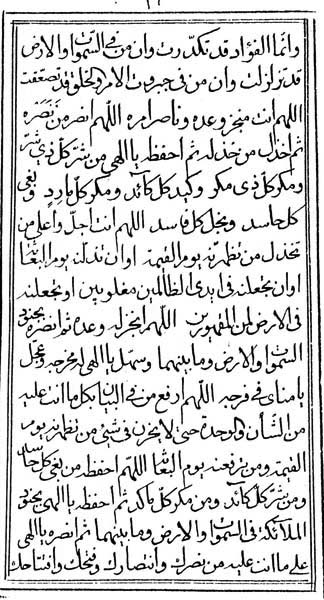 وانما الفؤاد قد تكدرت وان من في السموات والارض
قد تزلزلت وان من في جبروت الامر والخلق قد تصعقت
اللهم انت منجز وعده وناصر امره اللهم انصر من نصره
ثم اخذل من خذله ثم احفظه يا الهي من شر كل ذي شر
ومكر كل ذي مكر وكيد كل كائد ومكر كل مارد وبغي
كل حاسد وبخل كل فاسد اللهم انت اجل واعلى من
تخذل من تظهرنه يوم القيمة او ان تذلنه يوم
او ان تجعلنه في ايدي الظالمين مغلوبين او تجعلنه
في الارض لمن المقهورين اللهم انجز له وعده ثم انصره بجنود
السموات والارض وما بينهما وسهل يا الهي مخرجه وعجل
يا مناي في فرجه اللهم ارفع من في البيان بكل ما انت عليه
من الشأن والوحدة حتى لا يحزن في شيء من تظهرنه يوم
القيمة ومن ترفعنه يوم اللهم احفظه من بغي كل حاسد
ومن شر كل كائد ومن مكر كل ماكد ثم احفظه يا الهي بجنود
الملائكة في السموات والارض وما بينهما ثم انصره يا الهي
على ما انت عليه من نصرك وانتصارك وفتحك وافتتاحك